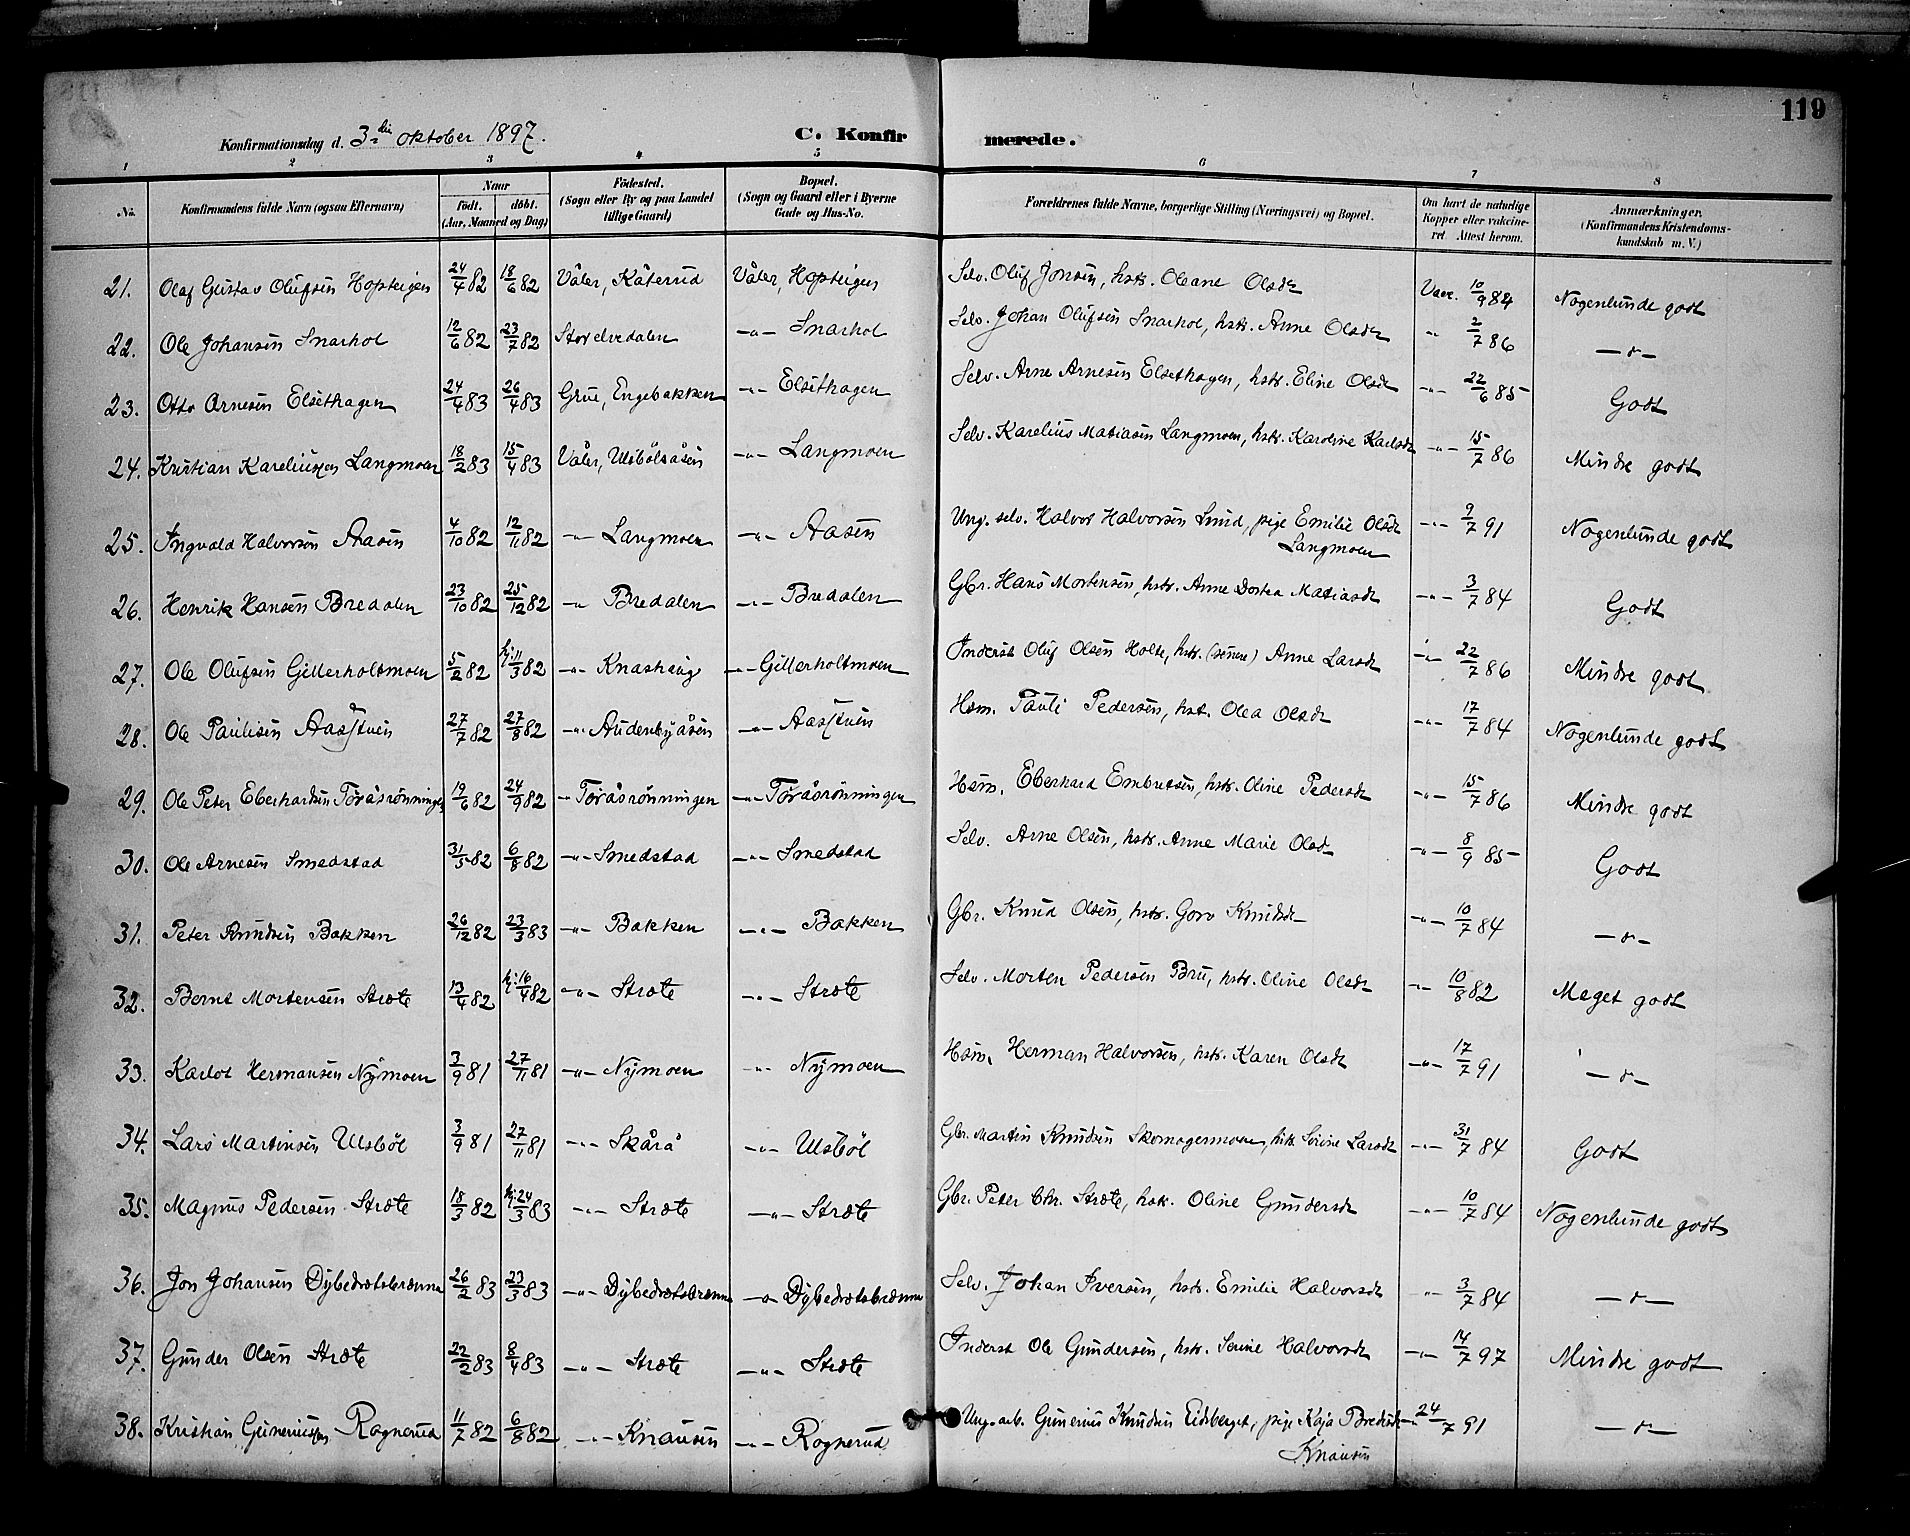 119
Konfirmationsdag d. 3die oktober 1897. C. Konfirmerede.
1 2 3 4 5 6 7 8
No. Konfirmandens fulde Navn (ogsaa Efternavn) Naar födt. döbt. (Aar, Maaned og Dag) Födested. (Sogn eller By og paa Landet tillige Gaard) Bopæl. (Sogn og Gaard eller i Byerne Gade og Hus-No. Forældrenes fulde Navne, borgerlige Stilling (Næringsvei) og Bopæl. Om havt de naturlige Kopper eller vaccineret Attest herom. Anmærkninger. (Konfirmandens Kristendomskundskab m. V.)
21. Olaf Gustav Olufsen Hopsteigen 24/4 82 18/6 82 Våler, Kåterud Våler, Hopsteigen Selv. Oluf Jonsen, hstr. Oleane Olsdr Vacc. 10/9 84 Nogenlunde godt
22. Ole Johansen Snarhol 12/6 82 23/7 82 Storelvedalen -"- Snarhol Selv. Johan Olufsen Snarhol, hstr. Anne Olsdr " 2/7 86 -"-
23. Otto Arnesen Elsethagen 24/4 83 26/4 83 Grue, Engebakken -"- Elsethagen Selv. Arne Arnesen Elsethagen, hstr. Eline Olsdr -"- 22/6 85 Godt
24. Kristian Kareliussen Langmoen 18/2 83 15/4 83 Våler, Ulsbölsåsen -"- Langmoen Selv. Karelius Matiasen Langmoen, hstr. Karoline Karlsdr -"- 15/7 86 Mindre godt
25. Ingvald Halvorsen Aasen 4/10 82 12/11 82 -"- Langmoen -"- Aasen Ung. selv. Halvor Halvorsen Lund, pige Emilie Olsdr Langmoen -"- 9/7 91 Nogenlunde godt
26. Henrik Hansen Bredalen 23/10 82 25/12 82 -"- Bredalen -"- Bredalen Gbr. Hans Mortensen, hstr. Anne Dortea Matiasdr -"- 3/7 84 Godt
27. Ole Olufsen Gillerholtmoen 5/2 82 hj: 11/3 82 -"- Knashaug -"- Gillerholtmoen Inderst Oluf Olsen Holte, hstr. (senere) Anne Larsdr -"- 22/7 86 Mindre godt
28. Ole Paulisen Aasstuen 27/7 82 27/8 82 -"- Audenbyåsen -"- Aasstuen Hsm. Pauli Pedersen, hst. Olea Olsdr -"- 17/7 84 Nogenlunde godt
29. Ole Peter Eberhardsen Toråsrönningen 19/6 82 24/9 82 -"- Toråsrönningen -"- Toråsrönningen Hsm. Eberhard Embretsen, hstr. Oline Pedersdr -"- 15/7 86 Mindre godt
30. Ole Arnesen Smedstad 31/5 82 6/8 82 -"- Smedstad -"- Smedstad Selv. Arne Olsen, hstr. Anne Marie Olsd -"- 8/9 85 Godt
31. Peter Knudsen Bakken 26/12 82 23/3 83 -"- Bakken -"- Bakken Gbr. Knud Olsen, hstr. Goro Knudsdr -"- 10/7 84 -"-
32. Bernt Mortensen Stræte 13/4 82 hj: 16/4 82 -"- Stræte -"- Stræte Selv. Morten Pedersen Bru, hstr. Oline Olsdr -"- 10/8 82 Meget godt
33. Karlot Hermansen Nymoen 3/9 81 27/11 81 -"- Nymoen -"- Nymoen Hsm. Herman Halvorsen, hstr. Karen Olsdr -"- 17/7 91 -"-
34. Lars Martinsen Ulsböl 3/9 81 27/11 81 -"- Skårå -"- Ulsböl Gbr. Martin Knudsen Skomagermoen, hstr. Serine Larsdr -"- 31/7 84 Godt
35. Magnus Pedersen Stræte 18/3 82 hj: 24/3 83 -"- Stræte -"- Stræte Gbr. Peter Chr. Stræte, hstr. Oline Gundersdr -"- 10/7 84 Nogenlunde godt
36. Jon Johansen Dybedrætsbrænna 26/2 83 23/3 83 -"- Dybedrætsbrænna -"- Dybedrætsbrænna Selv. Johan Iversen, hstr. Emilie Halvorsdr -"- 3/7 84 -"-
37. Gunder Olsen Stræte 22/2 83 8/4 83 -"- Stræte -"- Stræte Inderst Ole Gundersen, hstr. Serine Halvorsdr -"- 14/7 97 Mindre godt
38. Kristian Guneriussen Rognerud 11/7 82 6/8 82 -"- Knausen -"- Rognerud Ung. arb. Gunerius Knudsen Eidsberget, pige Kaja Bredesdr Knausen -"- 24/7 91 -"-